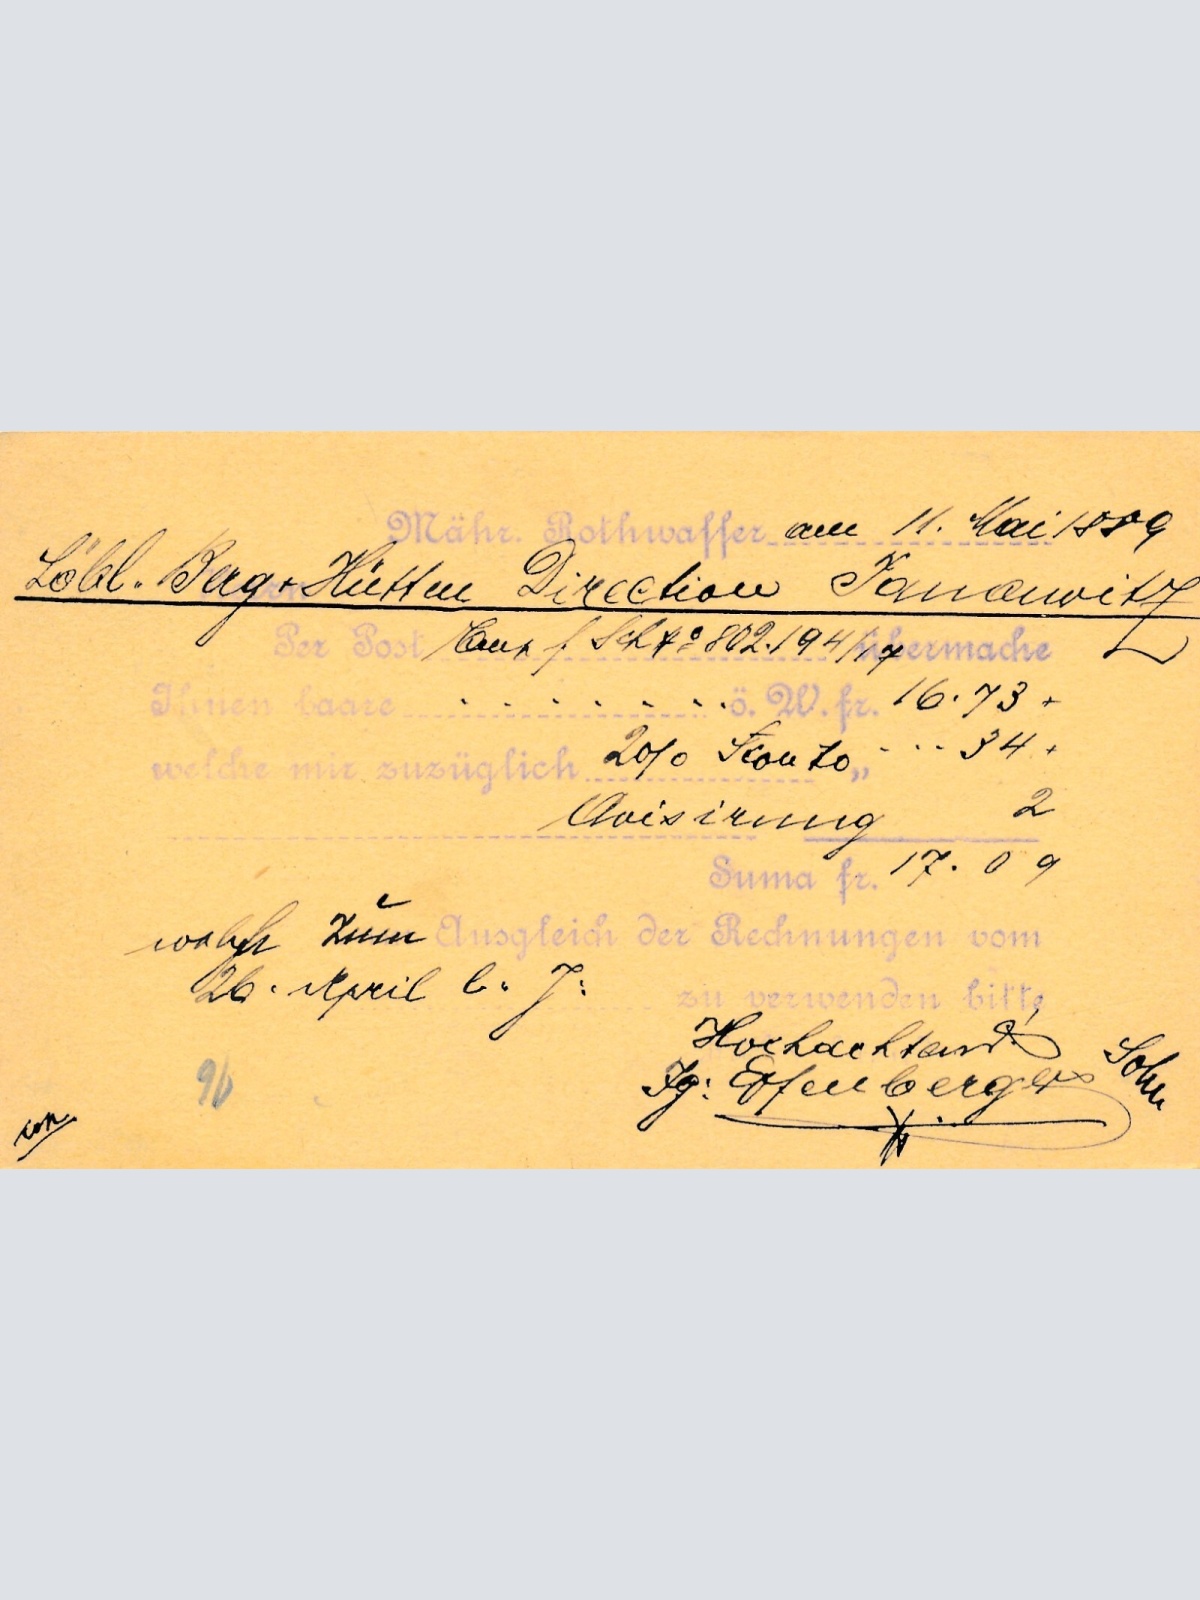 Mähr. Rothwasser am 11. Mai 1889
Löbl. Berg & Hütten Direction Janowitz
Per Post übermache
Ihnen baare ö. W. fr. 16.73
welche mir zuzüglich 2% Sconto „ 34
Avisirung 2
Suma fr. 17.09
welche zum Ausgleich der Rechnungen vom
26. April l. J. zu verwenden bitte
Hochachtend
Ig. Effenberger Sohn
96